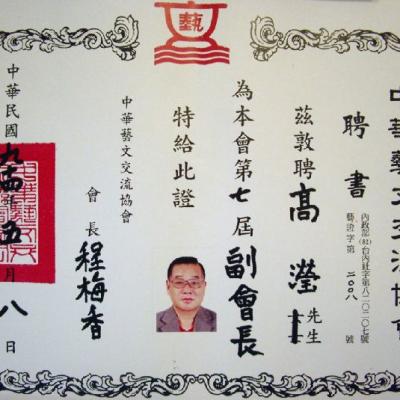 藝
中華藝文交流協會
聘書
內政部(82)台內社字第八二〇二〇七號
藝證字第二〇〇八號
茲敦聘高瀅先生
為本會第七屆副會長
特給此證
中華藝文交流協會
會長程梅香
中華民國九四年五月八日